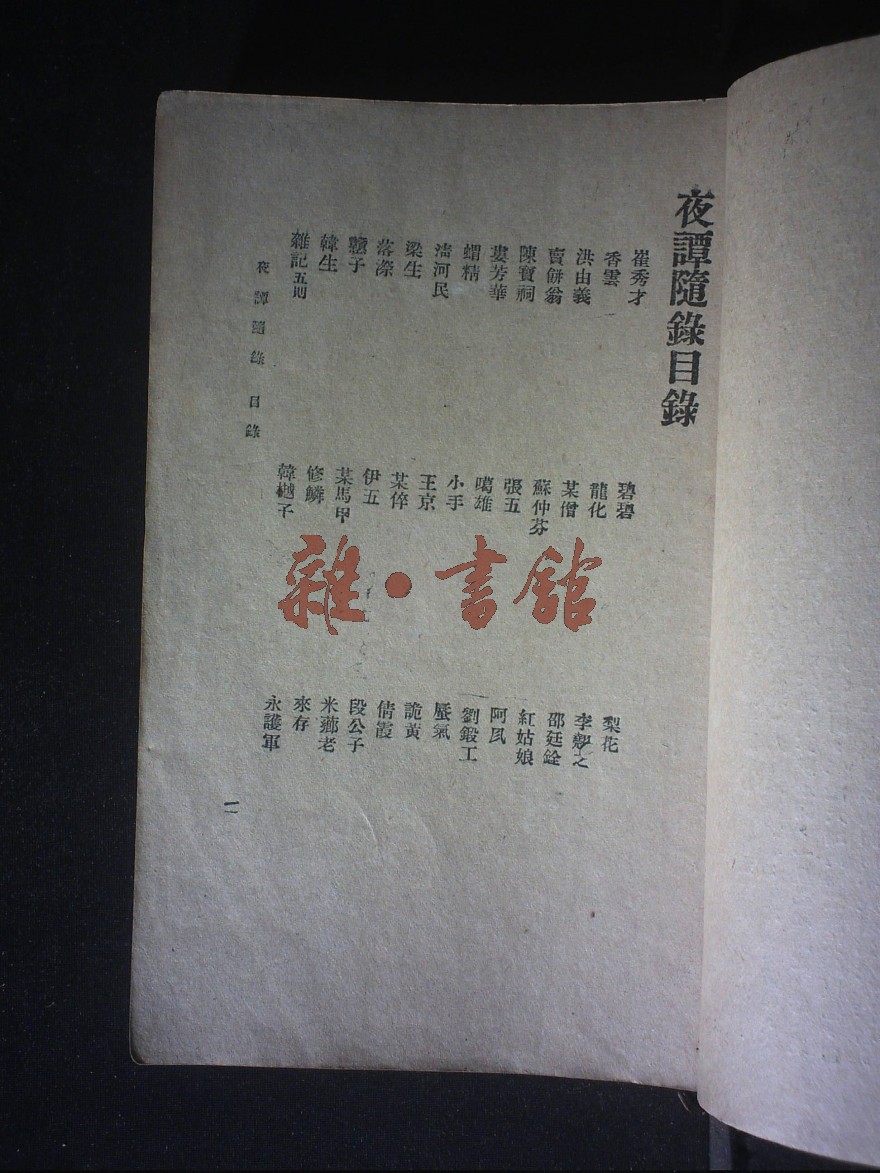 夜譚隨錄目錄
崔秀才 碧碧 梨花
香雲 龍化 李翹之
洪由義 某僧 邵廷銓
賣餅翁 蘇仲芬 紅姑娘
陳寶祠 張五 阿鳳
婁芳華 噶雄 劉鍛工
蝟精 小手 蜃氣
清河民 王京 詭黃
梁生 某倅 倩霞
落漈 伊五 段公子
戇子 某馬甲 米薌老
韓生 修鱗 來存
雜記五則 韓樾子 永護軍
夜譚隨錄 目錄
一
雜·書館